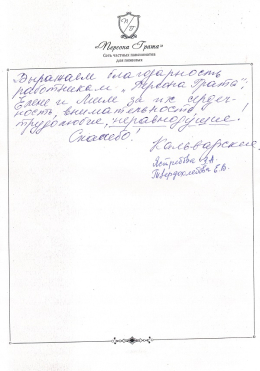 «Персона Грата»
Сеть частных пансионатов
для пожилых
Выражаем благодарность
работникам „Персона Грата”;
Елене и Лили за их сердеч-
ность, внимательность,
трудолюбие, неравнодушие!
Спасибо!
Кальварские